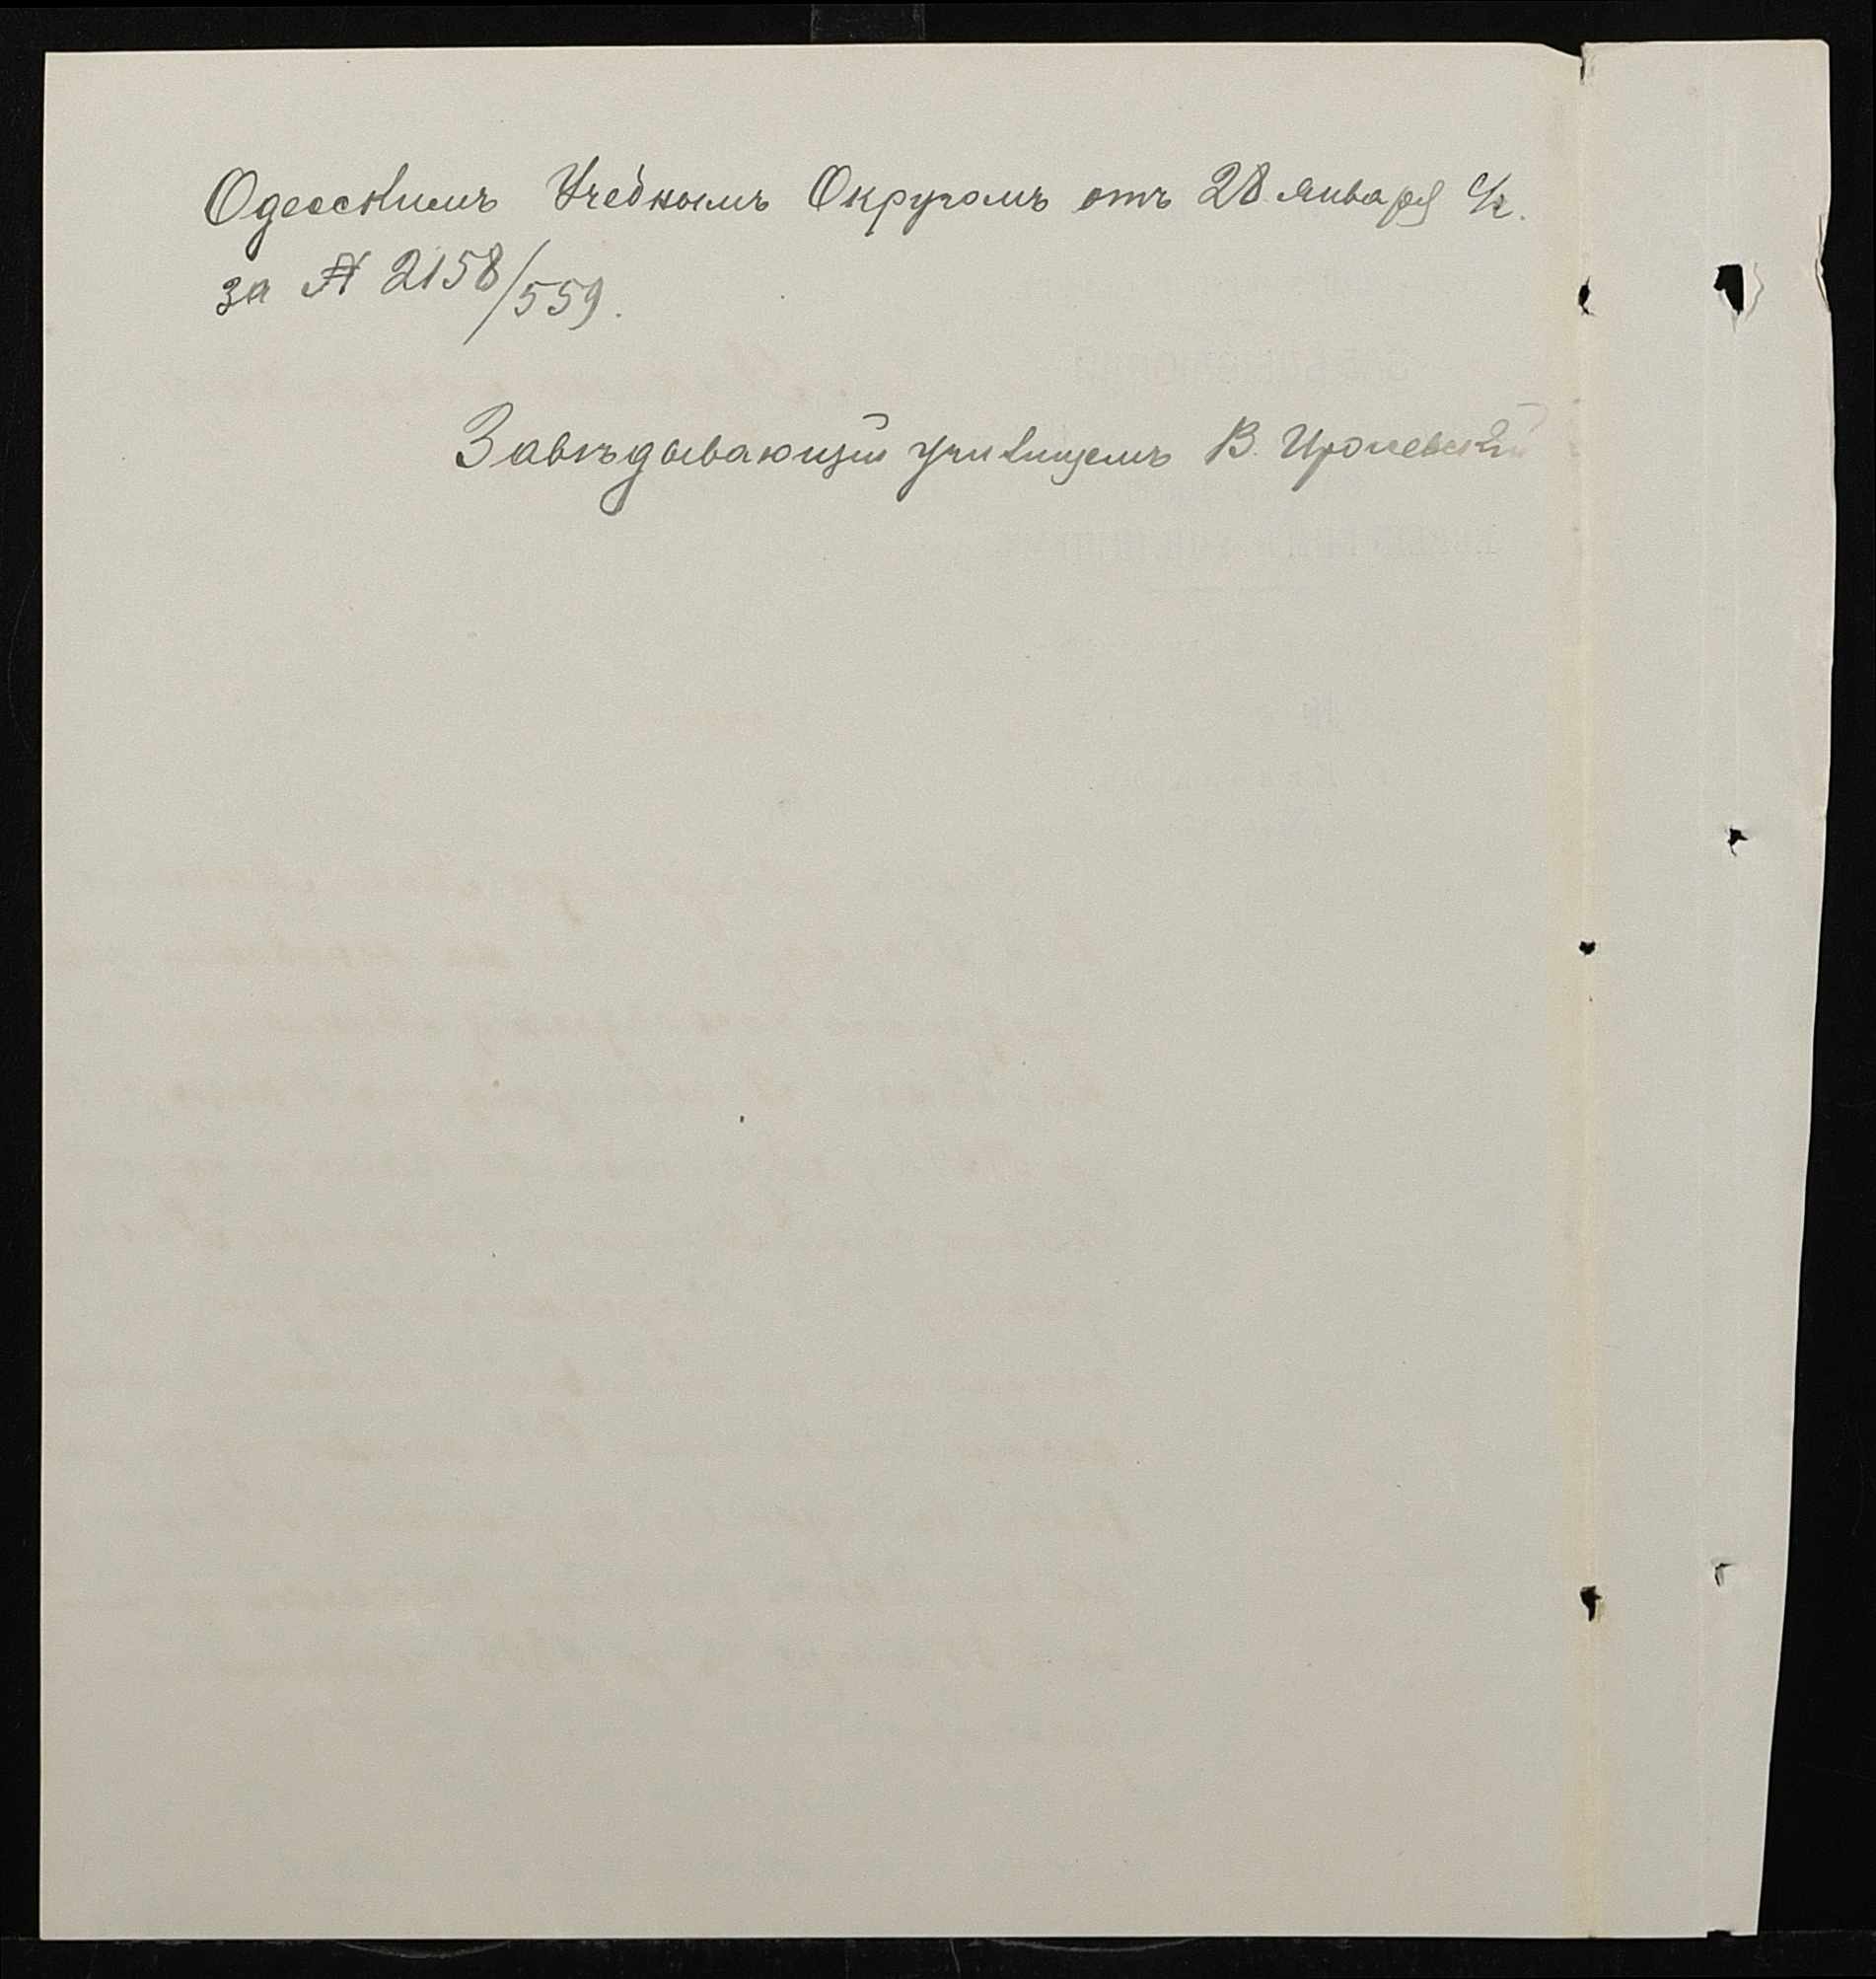 Одесскимъ Учебнымъ Округомъ отъ 28 января с/г.
за № 2158/559.
Завѣдывающій училищемъ В.